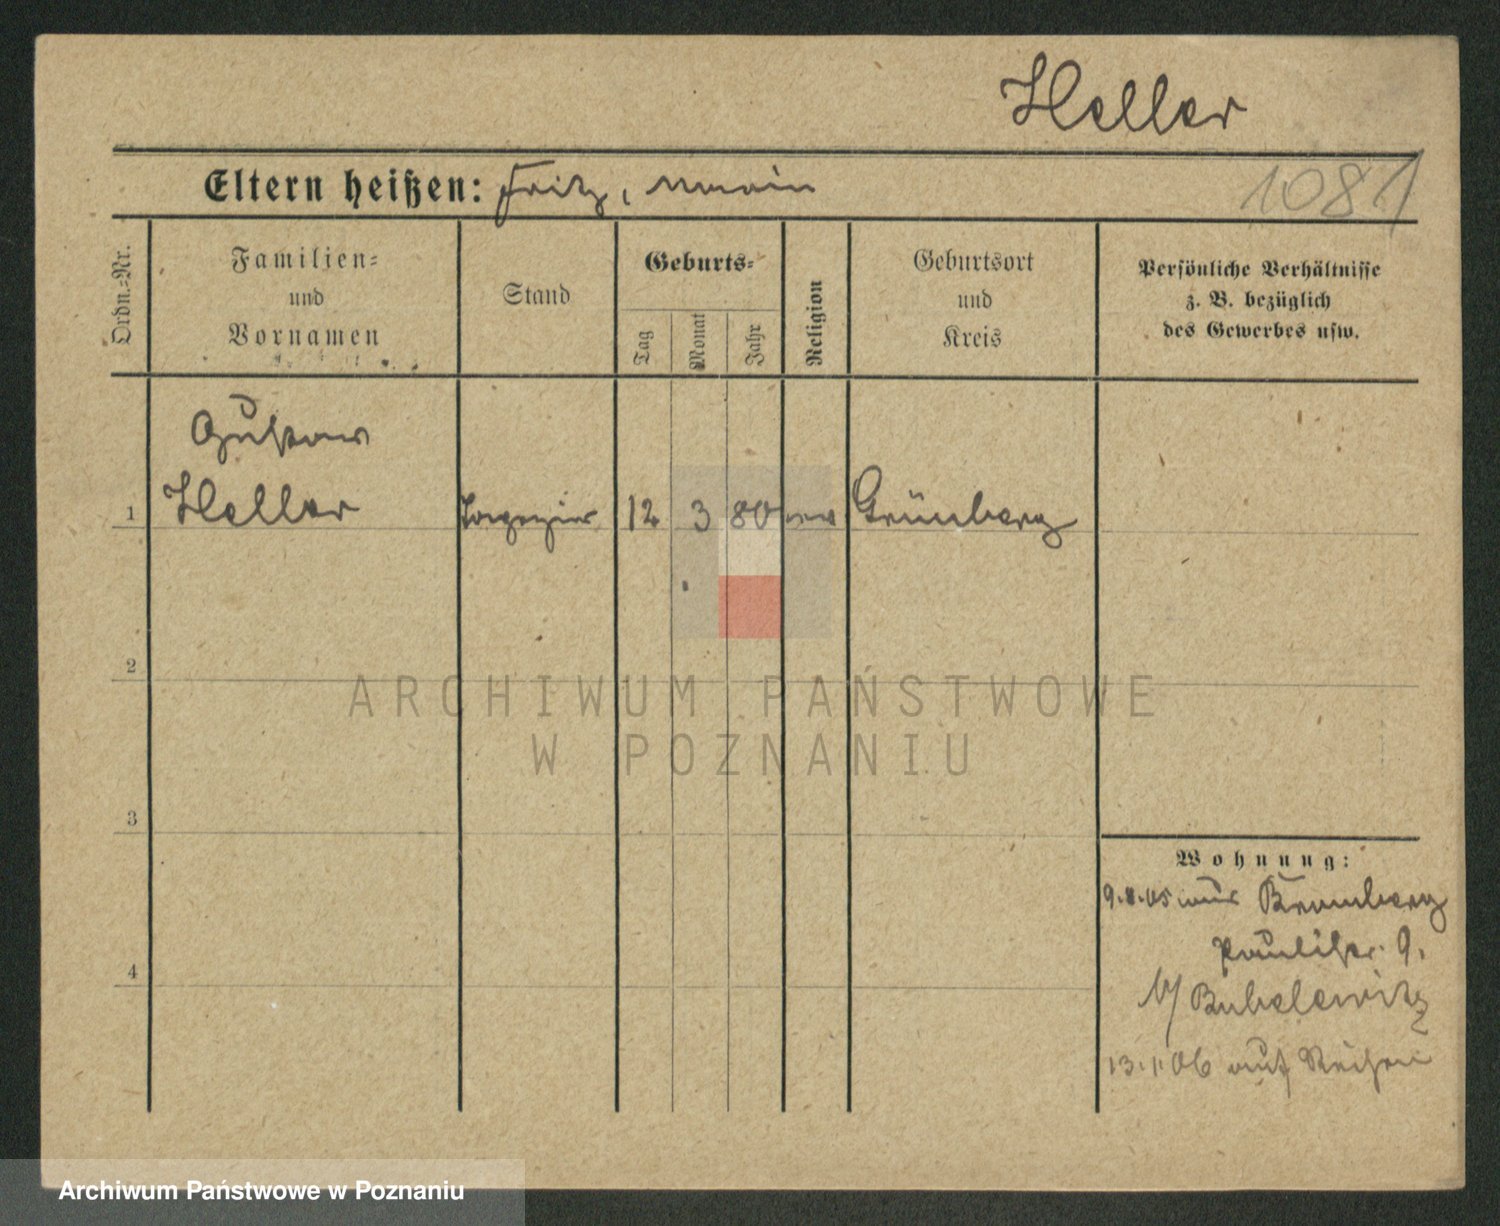 Heller
Eltern heißen: Fritz,
1081
Ordn.-Nr.
Familien-
und
Vornamen
Stand
Geburts-
Tag
Monat
Jahr
Religion
Geburtsort
und
Kreis
Persönliche Verhältnisse
z. B. bezüglich
des Gewerbes usw.
Gustav
1 Heller Tapezier 12 3 80 ev Grünberg
2
ARCHIWUM PAŃSTWOWE
W POZNANIU
3
Wohnung:
9. aus Bromberg
Paulistr. 9.
b/
4
13.1.06 auf Reisen
Archiwum Państwowe w Poznaniu